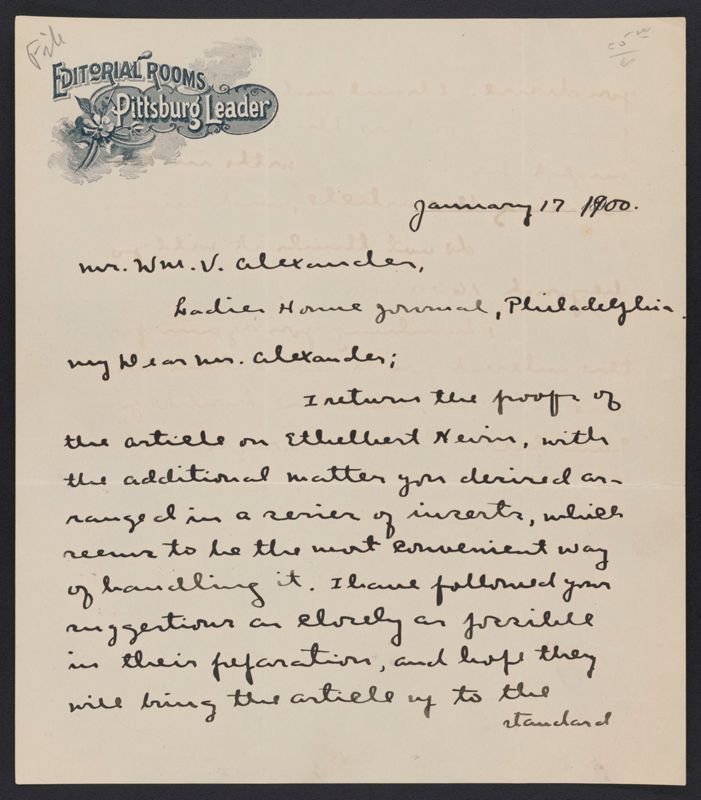 File
EDITORIAL ROOMS
Pittsburg Leader
January 17 1900.
Mr. Wm. V. Alexander,
Ladies Home Journal, Philadelphia.
My Dear Mr. Alexander;
I return the proofs of
the article on Ethelbert Nevin, with
the additional matter you desired ar-
ranged in a series of inserts, which
seems to be the most convenient way
of handling it. I have followed your
suggestions as closely as possible
in their preparation, and hope they
will bring the article up to the
standard